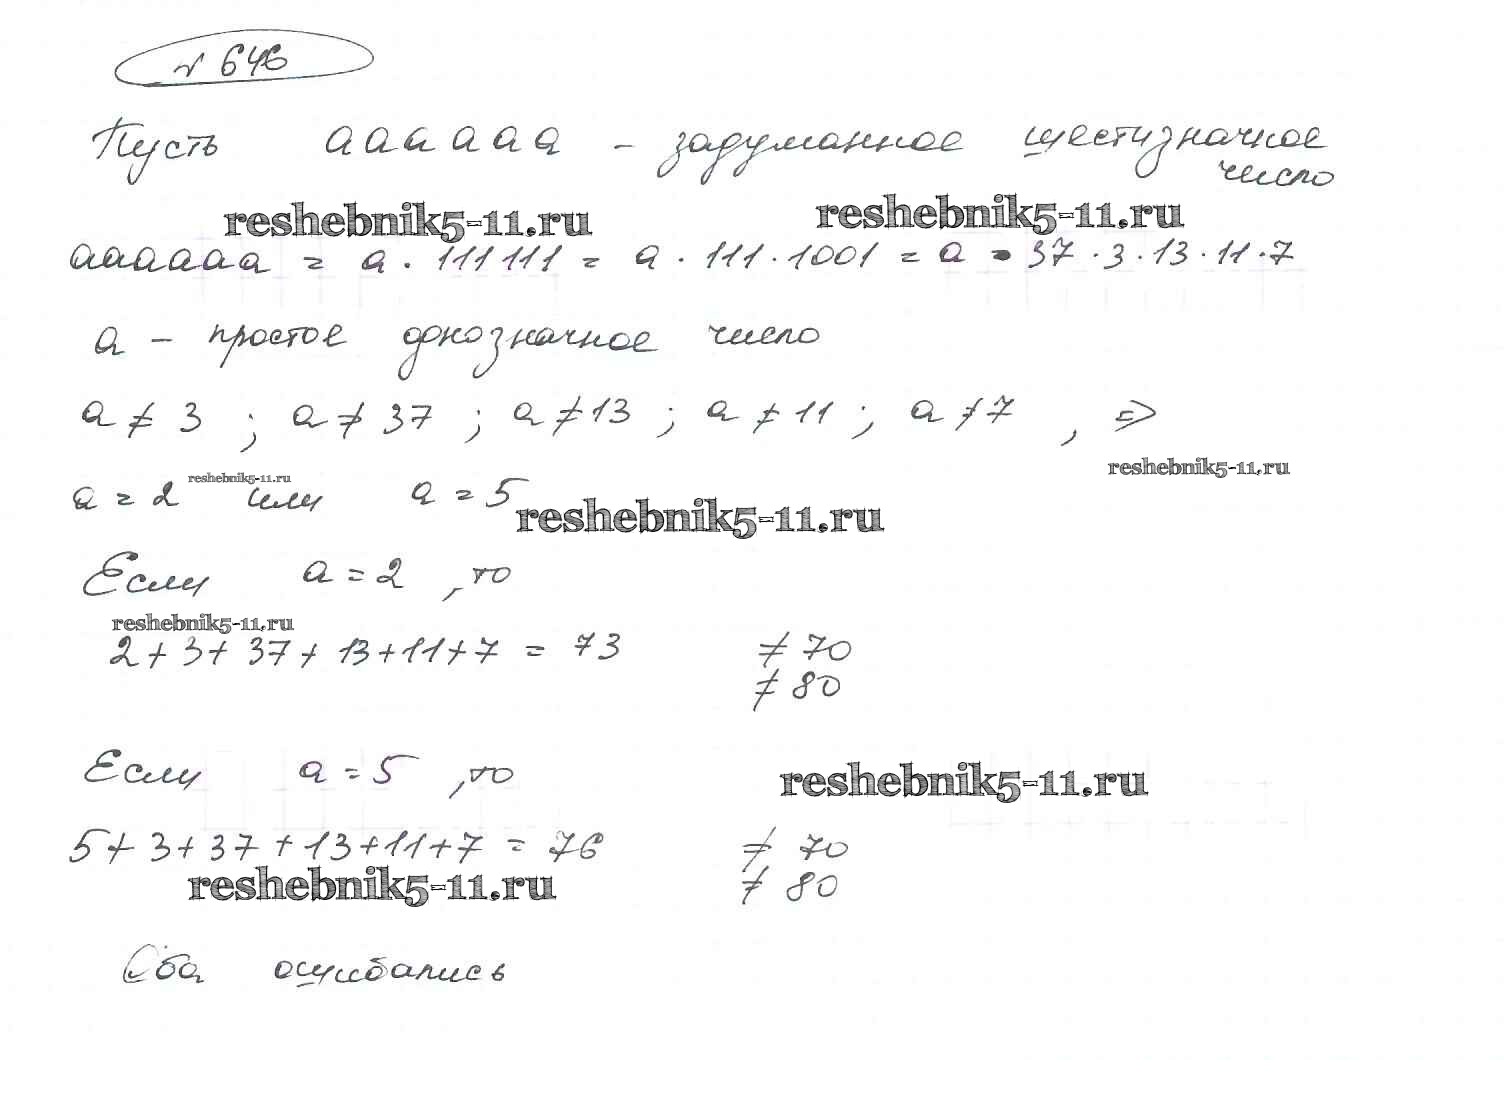 № 646
Пусть аааааа - задуманное шестизначное
число
reshebnik5-11.ru reshebnik5-11.ru
аааааа = а · 111111 = а · 111 · 1001 = а · 37 · 3 · 13 · 11 · 7
а - простое однозначное число
а ≠ 3 ; а ≠ 37 ; а ≠ 13 ; а ≠ 11 ; а ≠ 7 , ⇒
reshebnik5-11.ru
reshebnik5-11.ru
а = 2 или а = 5
reshebnik5-11.ru
Если а = 2 , то
reshebnik5-11.ru
2 + 3 + 37 + 13 + 11 + 7 = 73 ≠ 70
≠ 80
Если а = 5 , то
reshebnik5-11.ru
5 + 3 + 37 + 13 + 11 + 7 = 76 ≠ 70
reshebnik5-11.ru ≠ 80
Оба ошибались